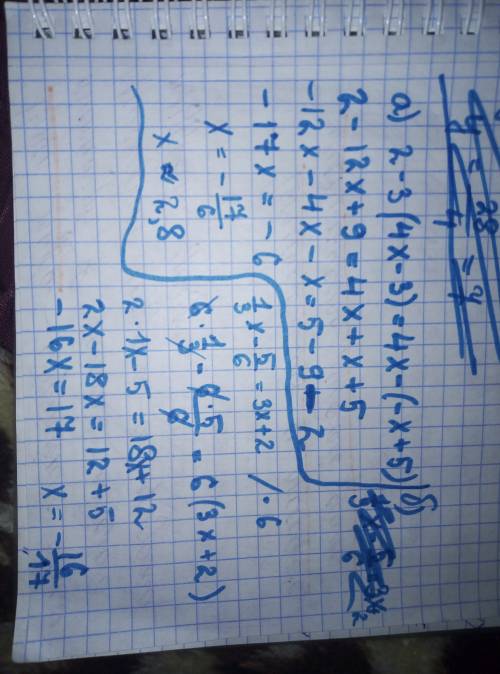 a) 2-3(4x-3)=4x-(-x+5)
2-12x+9=4x+x+5
-12x-4x-x=5-9-2
-17x=-6
x=-17/6
x≈2,8
б)
1/3x-5/6=3x+2 /·6
6·1/3-6·5/6=6(3x+2)
2·1x-5=18x+12
2x-18x=12+5
-16x=17 x=-16/17